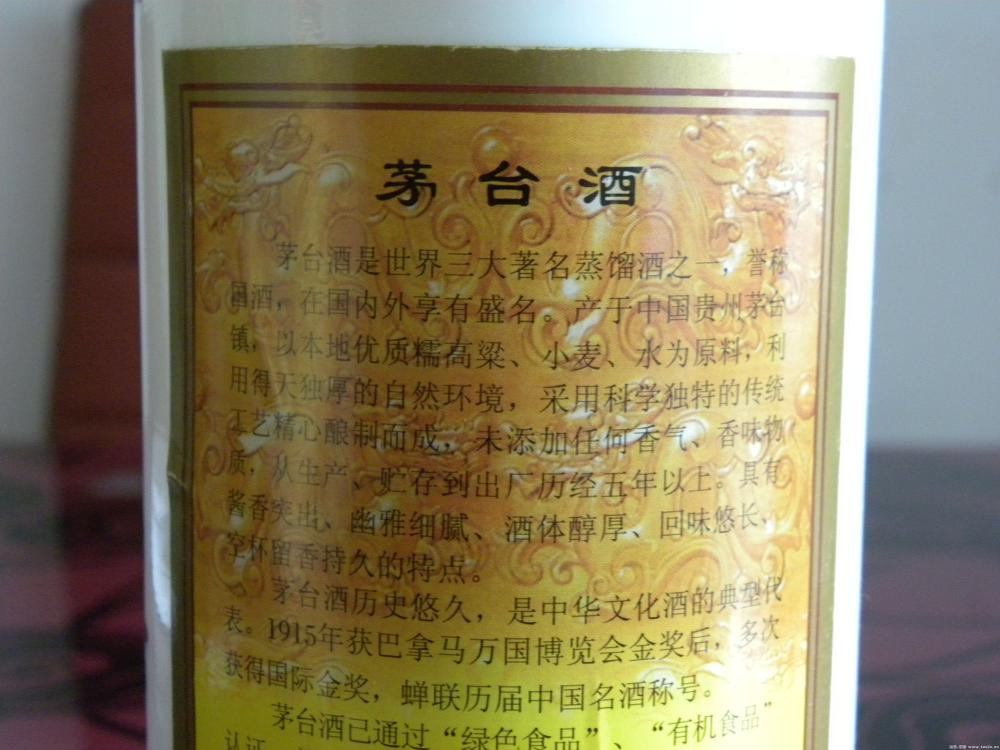 茅台酒
茅台酒是世界三大著名蒸馏酒之一，誉称
国酒，在国内外享有盛名。产于中国贵州茅台
镇，以本地优质糯高粱、小麦、水为原料，利
用得天独厚的自然环境，采用科学独特的传统
工艺精心酿制而成，未添加任何香气、香味物
质，从生产、贮存到出厂历经五年以上。具有
酱香突出、幽雅细腻、酒体醇厚、回味悠长、
空杯留香持久的特点。
茅台酒历史悠久，是中华文化酒的典型代
表。1915年获巴拿马万国博览会金奖后，多次
获得国际金奖，蝉联历届中国名酒称号。
茅台酒已通过“绿色食品”、“有机食品”
认证